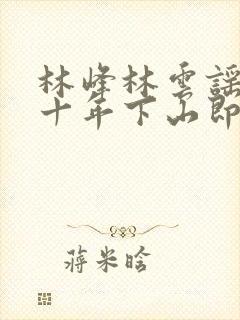 林峰林雲謠
十年下山即
蔣米晗